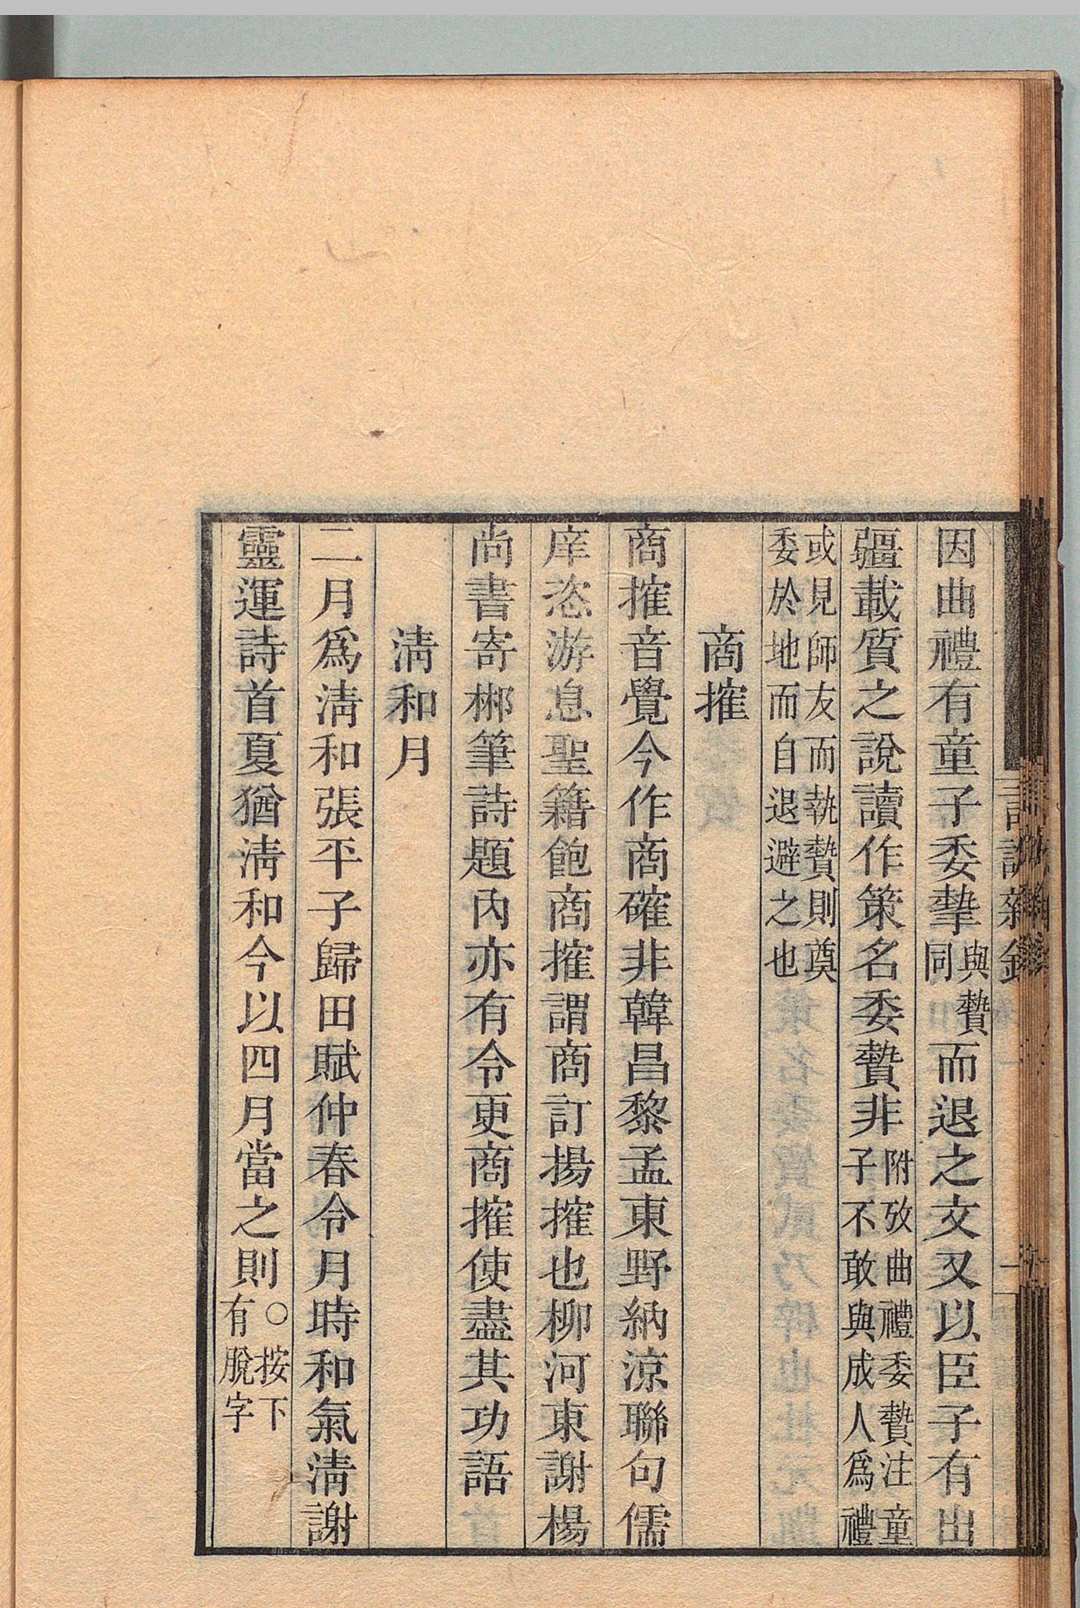 因曲禮有童子委摯與贄同而退之文又以臣子有出
疆載質之說讀作策名委贄非附攷曲禮委贄注童子不敢與成人爲禮
或見師友而執贄則奠委於地而自退避之也
商搉
商搉音覺今作商確非韓昌黎孟東野納涼聯句儒
庠恣游息聖籍飽商搉謂商訂揚搉也柳河東謝楊
尚書寄郴筆詩題內亦有令更商搉使盡其功語
淸和月
二月爲淸和張平子歸田賦仲春令月時和氣淸謝
靈運詩首夏猶淸和今以四月當之則○按下有脫字